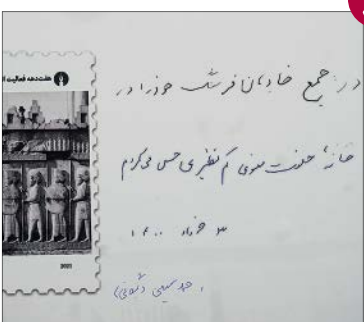 هفت دهه فعالیت
در جمع خادمان فرهنگ خود را در
خانهٔ معنوی کم نظیری حس می‌کردم
۳ خرداد ۱۴۰۰
2021